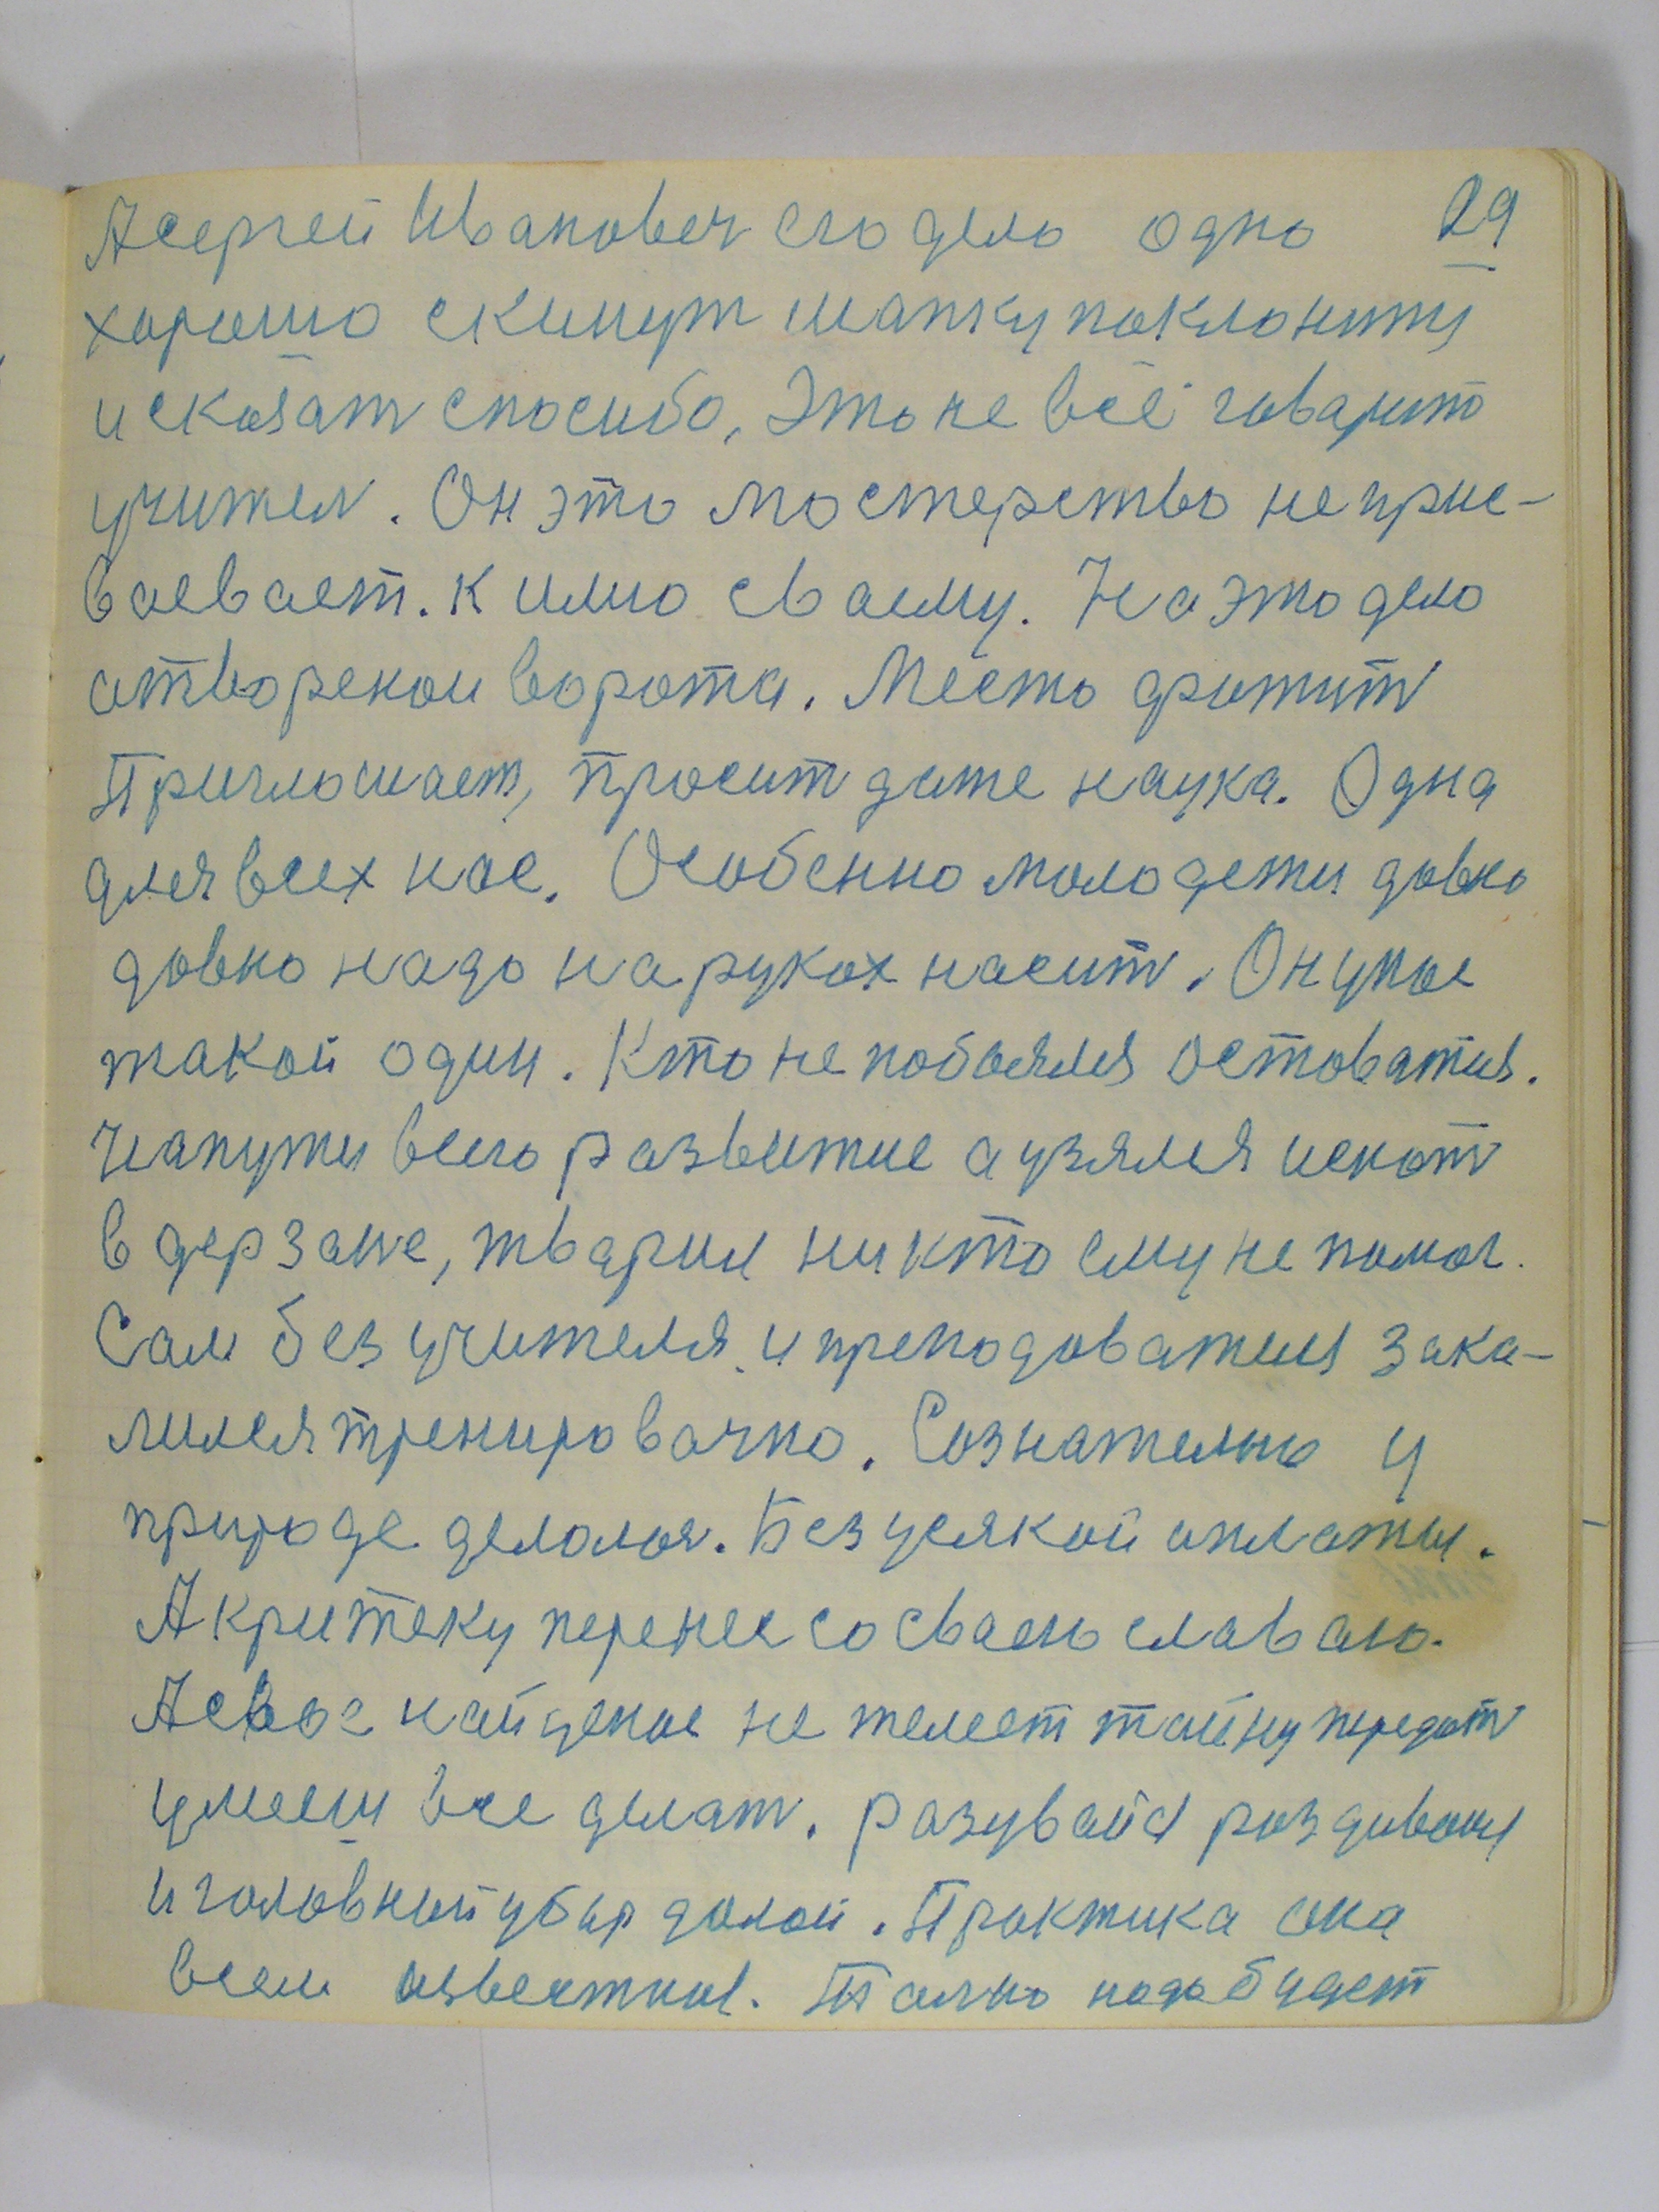 Асергей Иванович его дело одно 29
хорошо скинут шапку поклонитц
и скозат спосибо, Это не всё говарит
учител. Он это мостерство не прис-
воевоет. к имю своему. На это дело
атворенои ворота. Место дрожит
Приглошает, просит даже наука. Одна
для всех нас. Особенно молодежи довно
довно надо на руках насит. Он у нас
такой один. Кто не побоялся остоватия.
На пути всего развитие а узялся искат
в дерзане, тварил никто ему не помог.
Сам без учителя и преподователя зака-
лился тренировачно. Сознательно у
природе делолоя. Без усякой оплаты.
А критеку перенес со своею славаю.
А свое найденое не желеет тайну передат
умееш все делат. Разувайся роздивайся
и головный убор долой. Практика она
всем известная. Толко надо будет